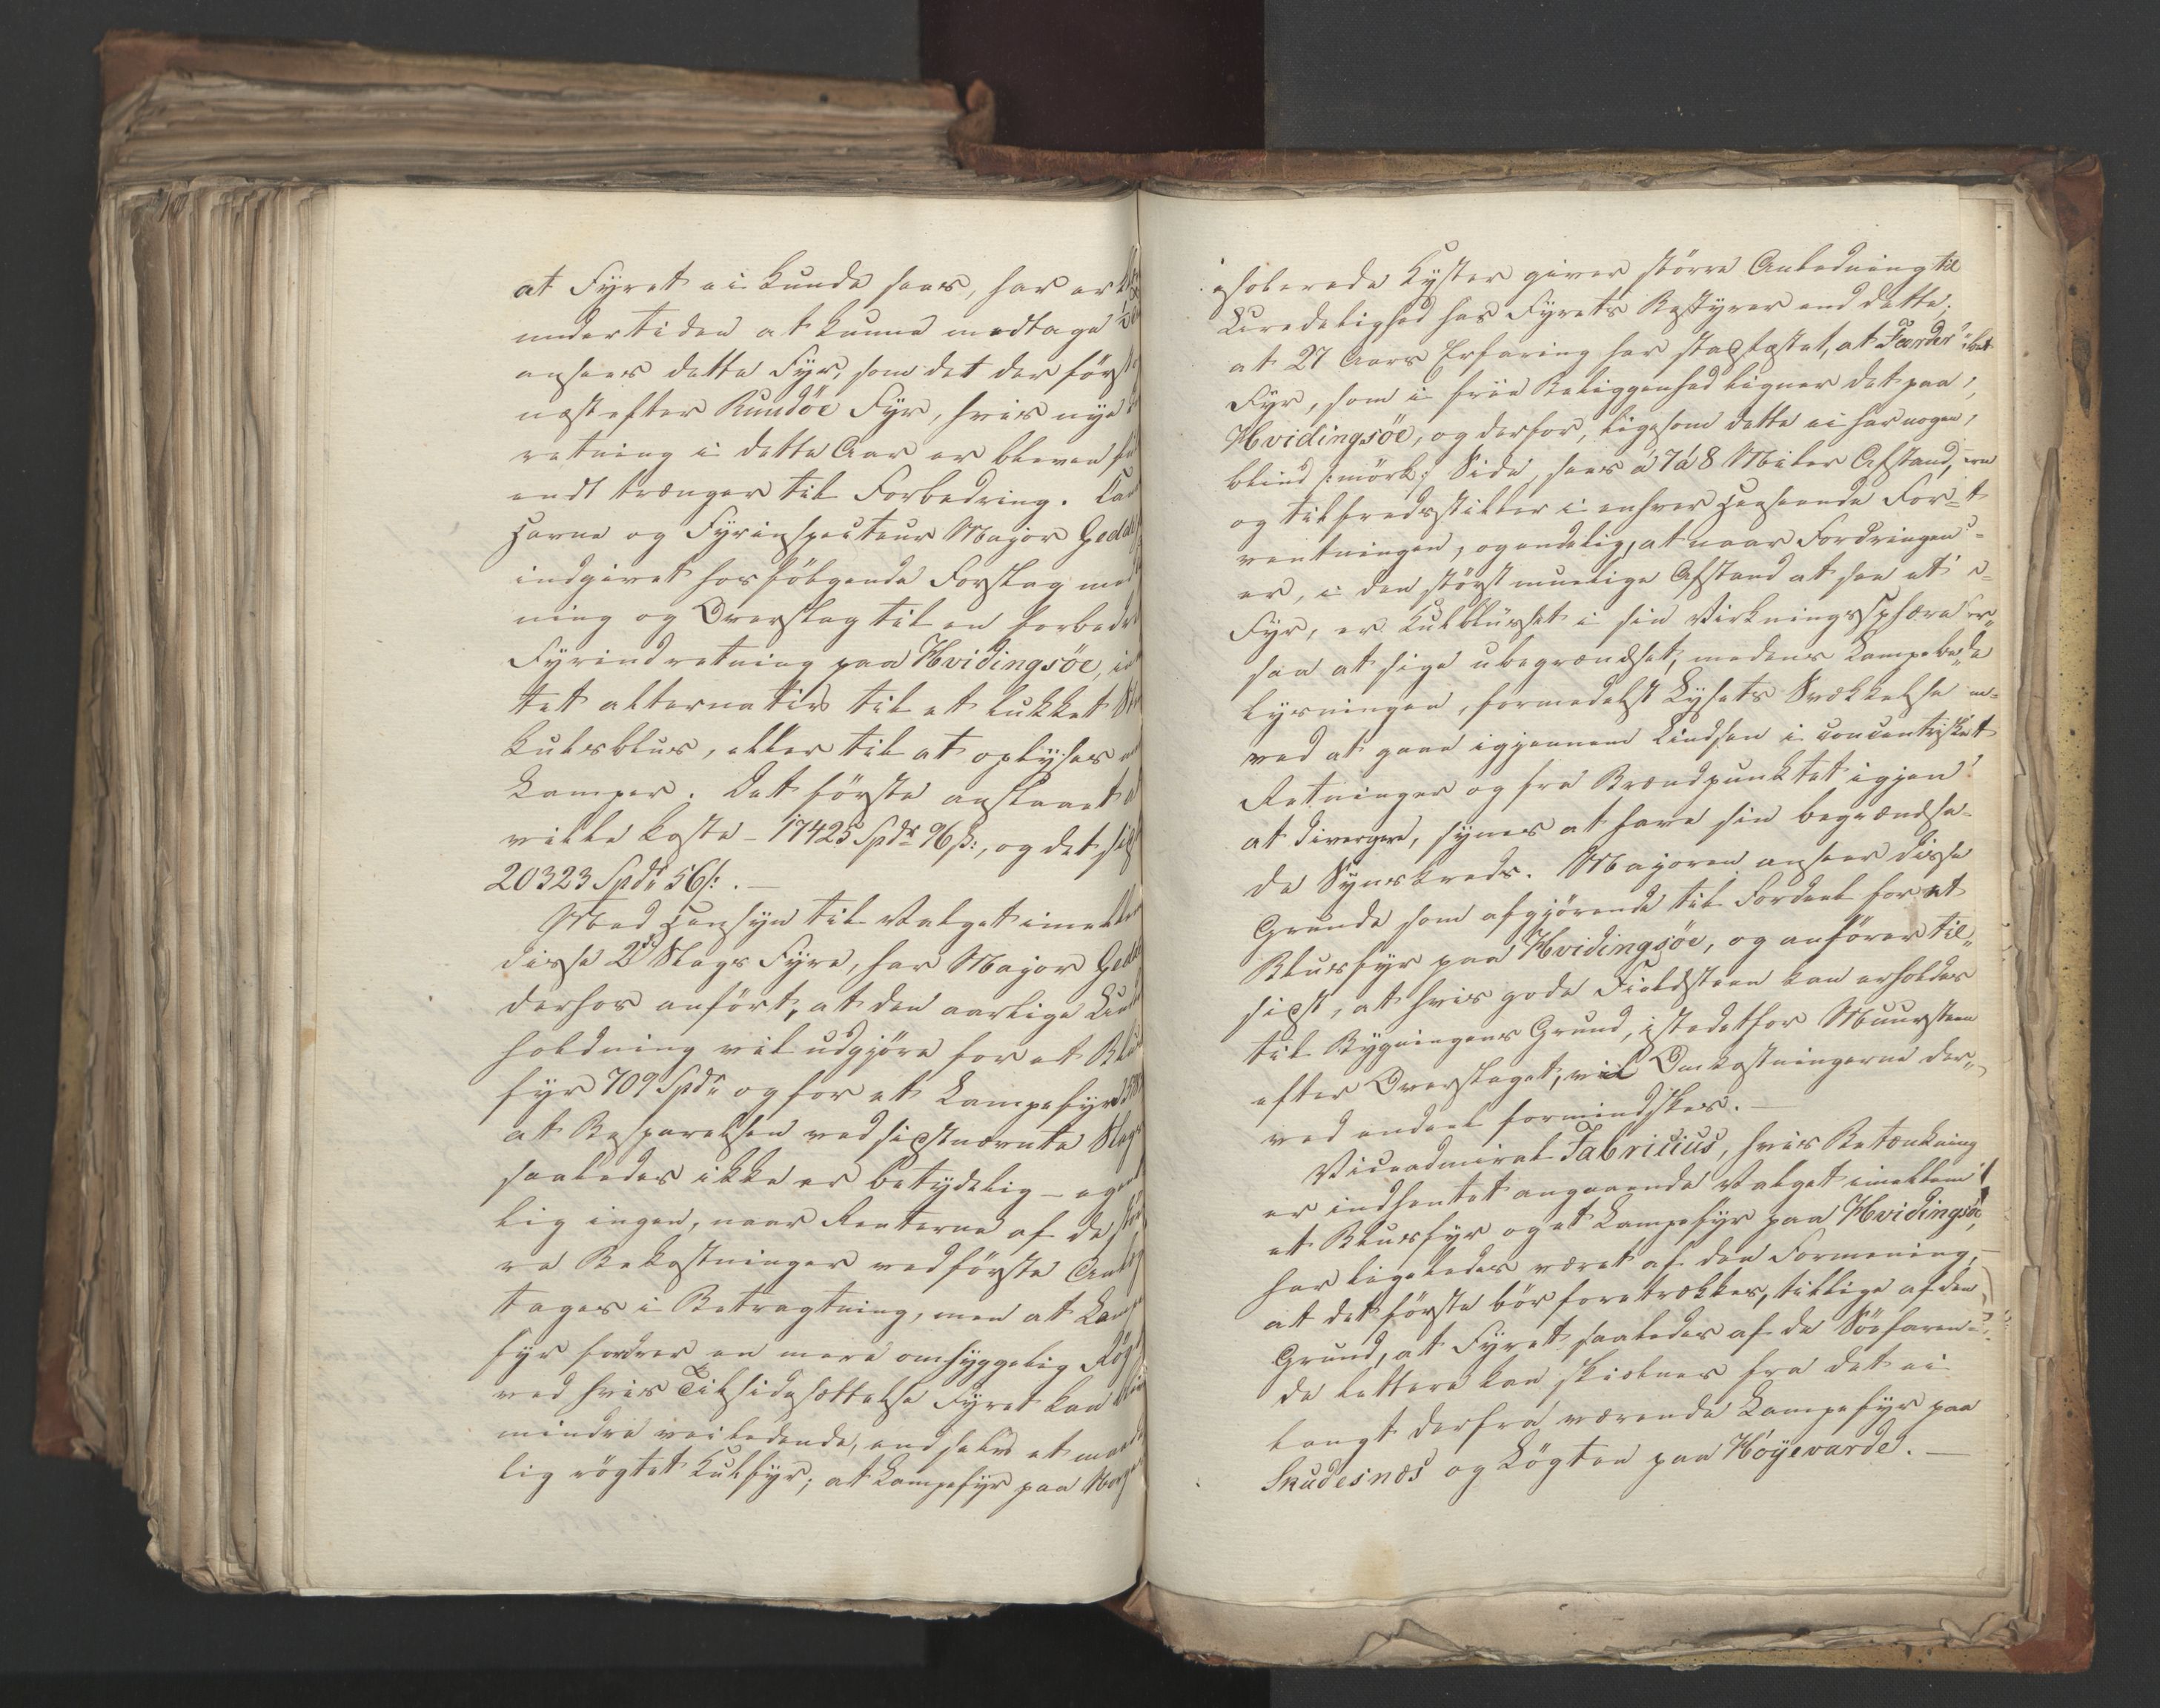 at Fyret ei kunde sees, har er
undertiden at kunne modtage
ansees dette Fyr, som det der först
næstefter Rundöe Fyr, hvis nye
retning i dette Aar er bleven
endt trænger til Forbedring.
Havne og Fyrinspecteur Major Gedde
indgivet hosfölgende Forslag med
ning og Overslag til en forbedr
Fyrindretning paa Hvidingsöe, in
tet alternativ til et lukket
Kulsblus, eller til at oplyses
Lamper. Det förste anslaaet
ville koste - 17425 Spdr 96 ß:, og det sids
20323 Spdr 56 ß: . —
Med Hensyn til Valget imellem
disse 2de Slags Fyre, har Major Gedde
derhos anfört, at den aarlige
holdning vil udgjöre for et Blus
fyr 709 Spdr og for et Lampefyr
at Besparelsen ved sidstnævnte Slags
saaledes ikke er betydelig - egent
lig ingen, naar Renterne af de stör
re Bekostninger ved förste Anlæg
tages i Betragtning, men at Lampe
fyr fordrer en mere omhyggelig Rög
ved hvis Tilsidesættelse Fyret kan blive
mindre veiledende, end selv et maade
lig rögtet Kulfyr; at Lampefyr paa Norges
isolerede Kyster giver större Anledning til
Uredelighed hos Fyrets Bestyrer end dette;
at 27 Aars Erfaring har stadfæstet, at Færder
Fyr, som i friie Beliggenhed ligner det paa
Hvidingsöe, og derfor, ligesom dette ei har nogen
blind /: mörk :/ Side, sees à 7 à 8 Miles Afstand,
og tilfredsstiller i enhver Henseende For=
ventningen, og endelig, at naar Fordringen
er, i den störst muelige Afstand at see et
Fyr, er Kulblusset i sin Virkningssphære
saa at sige ubegrændset, medens Lampebe„
lysningen, formedelst Lysets Svækkelse
ved at gaae igjennem Lindsen i concentriske
Retninger og fra Brændpunktet igjen
at divergere, synes at have sin begrændse=
de Synskreds. Majoren anseer disse
Grunde som afgjörende til Fordeel for et
Blusfyr paa Hvidingsöe, og anförer til„
sidst, at hvis gode Fieldsteen kan erholdes
til Bygningens Grund, istedetfor Muursteen
efter Overslaget, vil Omkostningerne der„
ved endeel formindskes. —
Viceadmiral Fabricius, hvis Betænkning
er indhentet angaaende Valget imellem
et Blusfyr og et Lampefyr paa Hvidingsöe,
har ligeledes været af den Formening,
at det förste bör foretrækkes, tillige af den
Grund, at Fyret saaledes af de Söefaren=
de lettere kan skielnes fra det ei
langt derfra værende Lampefyr paa
Skudesnæs og Lögten paa Höyevarde. —